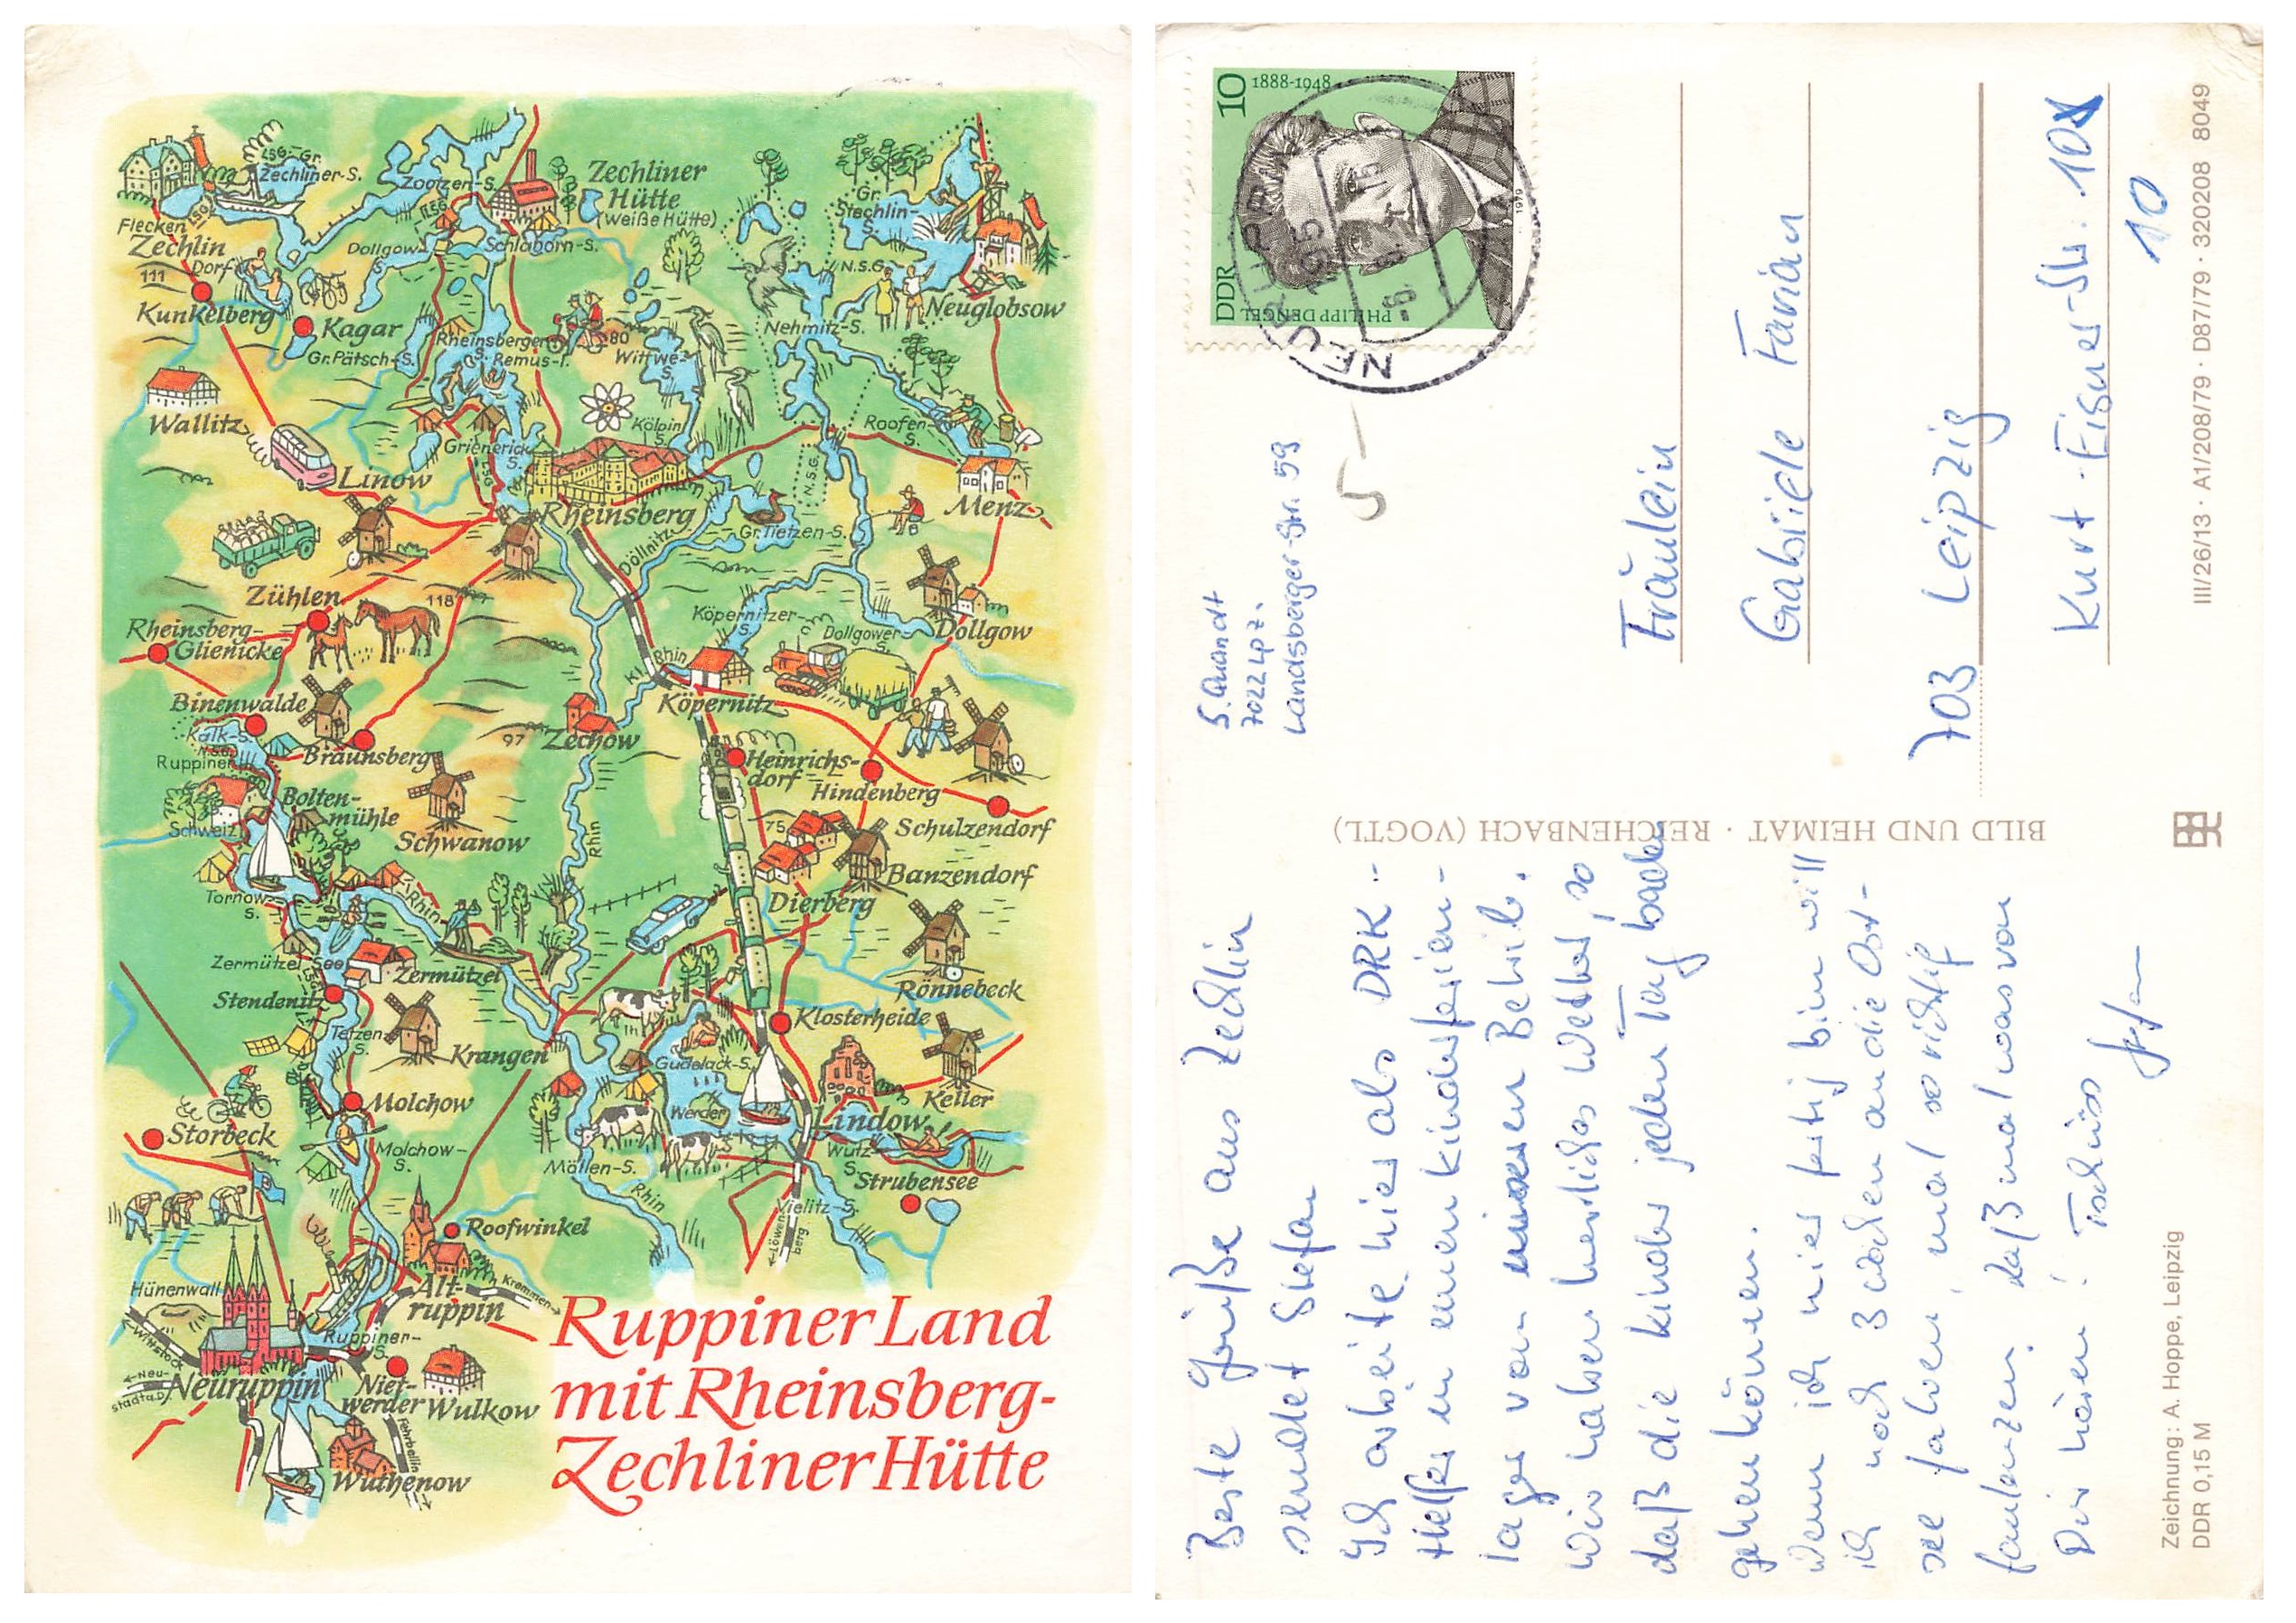 LSG.-Gr.
Zechliner-S.
Zootzen-S.
Zechliner
Hütte
(Weiße Hütte)
Gr.
Stechlin-
S.
Flecken
Zechlin
LSG
LSG
Dorf
Dollgow-
S.
Schlaborn-S.
111
N.S.G.
Kunkelberg
Kagar
Neuglobsow
Nehmitz-S.
Rheinsberger
S.
Remus-I.
80
Wittwe-
S.
Gr.Pätsch-S.
Wallitz
Kölpin
S.
Roofen-
S.
Grienerick-
S.
LSG
N.S.G.
Linow
Menz
Rheinsberg
Gr.Tietzen-S.
Döllnitz
Zühlen
118
Köpernitzer-
S.
Dollgower-
S.
Dollgow
Rheinsberg-
Glienicke
Kl. Rhin
Binenwalde
Köpernitz
Kalk-S.
N.S.G.
97
Zechow
Braunsberg
Ruppiner
Heinrichs-
dorf
Hindenberg
Bolten-
mühle
Schweiz
Schwanow
Rhin
75
Schulzendorf
Banzendorf
Tornow-
S.
Rhin
Dierberg
Zermützel See
LSG
Zermützel
Stendenitz
Rönnebeck
Tetzen-
S.
Klosterheide
Krangen
Gudelack-S.
Molchow
Werder
Keller
Lindow
Storbeck
Molchow-
S.
Möllen-S.
Wutz-
S.
Strubensee
Rhin
Vielitz-S.
Roofwinkel
←Löwen-
berg
Hünenwall
Alt-
ruppin
Kremmen→
←Wittstock
Ruppiner-
S.
←Neu-
stadt a.D.
Neuruppin
Niet-
werder
Wulkow
Fehrbellin→
Wuthenow
Ruppiner Land
mit Rheinsberg-
Zechliner Hütte
10
1888-1948
DDR
PHILIPP DENGEL
1979
NEURUPPIN
195
5-
S. Quandt
7022 Lpz.
Landsberger-Str. 59
Fräulein
Gabriele Farian
703 Leipzig
Kurt-Eisner-Str. 10
10
III/26/13 · A1/208/79 · D87/79 · 320208 8049
BILD UND HEIMAT · REICHENBACH (VOGTL)
Beste Grüße aus Zechlin
sendet Stefan
Ich arbeite hier als DRK-
Helfer in einem Kinderferien-
lager von unseren Betrieb.
Wir haben herrliches Wetter, so
daß die Kinder jeden Tag baden
gehen können.
Wenn ich hier fertig bin will
ich noch 3 Wochen an die Ost-
see fahren, mal so richtig
faulenzen. Laß mal was von
Dir hören! Tschüss
Stefan
Zeichnung: A. Hoppe, Leipzig
DDR 0,15 M